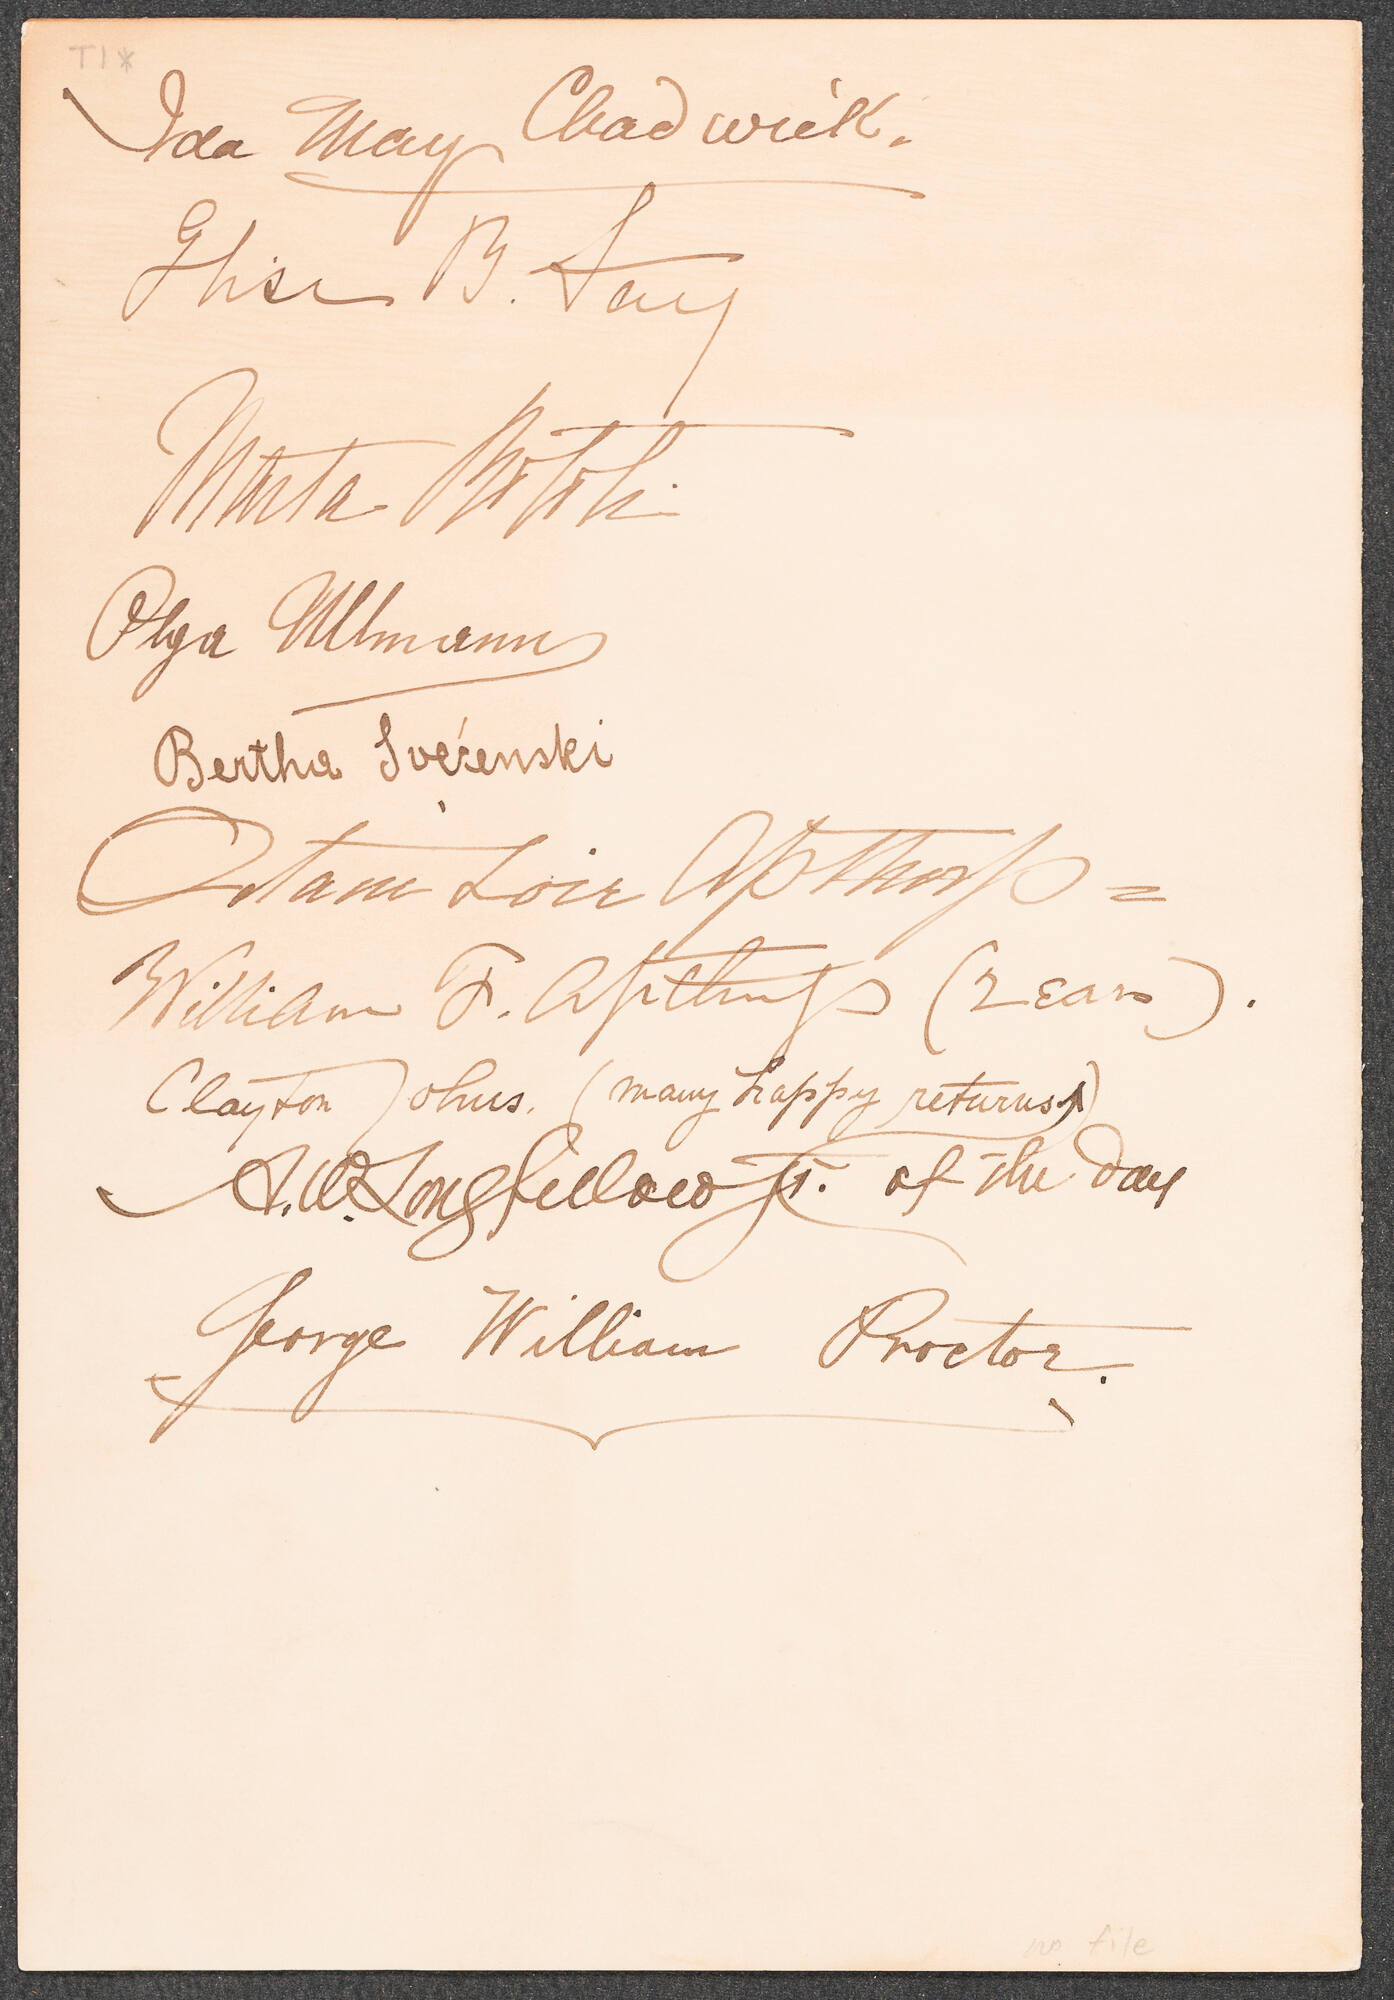 T1*
Ida May Chadwick.
Elise B. Fay
Marta
Olga Ullmann
Bertha Svećenski
Octavie Loir Apthorp =
William F. Apthorp (2 ears).
Clayton Johns. (many happy returns)
A. W. Longfellow Jr. of the day
George William Proctor.
no file